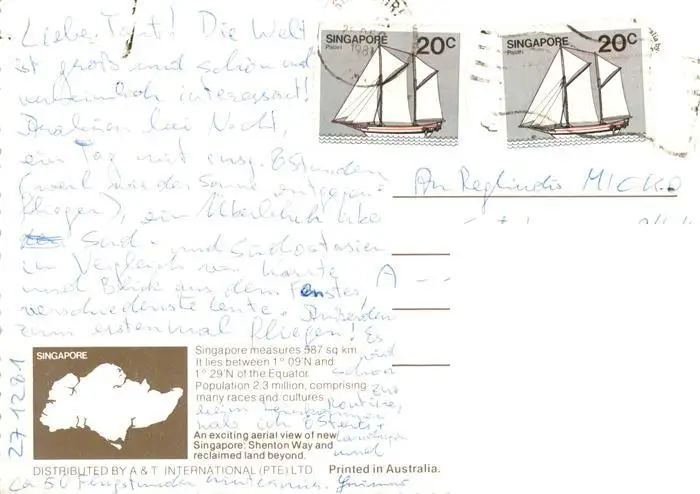 Liebe Tant! Die Welt
ist groß und schön und
unheimlich interessant!
Arabien bei Nacht,
ein Tag mit insg. 6 Stunden
(weil wir der Sonne entgegen-
fliegen), ein Überblick über
Süd- und Südostasien
im Vergleich von Karte
und Blick aus dem Fenster,
verschiedenste Leute. Außerdem
zum erstenmal fliegen! Es
wird
schon
zur
Routine,
beim
hab ich
und
ca 50 Flugstunden
27 12 81
SINGAPORE 20c
Palari
SINGAPORE 20c
Palari
1981
An Reglindis MICKO
A - -
SINGAPORE
Singapore measures 587 sq km
It lies between 1° 09'N and
1° 29'N of the Equator
Population 2.3 million, comprising
many races and cultures
An exciting aerial view of new
Singapore: Shenton Way and
reclaimed land beyond.
DISTRIBUTED BY A & T INTERNATIONAL (PTE) LTD
Printed in Australia.